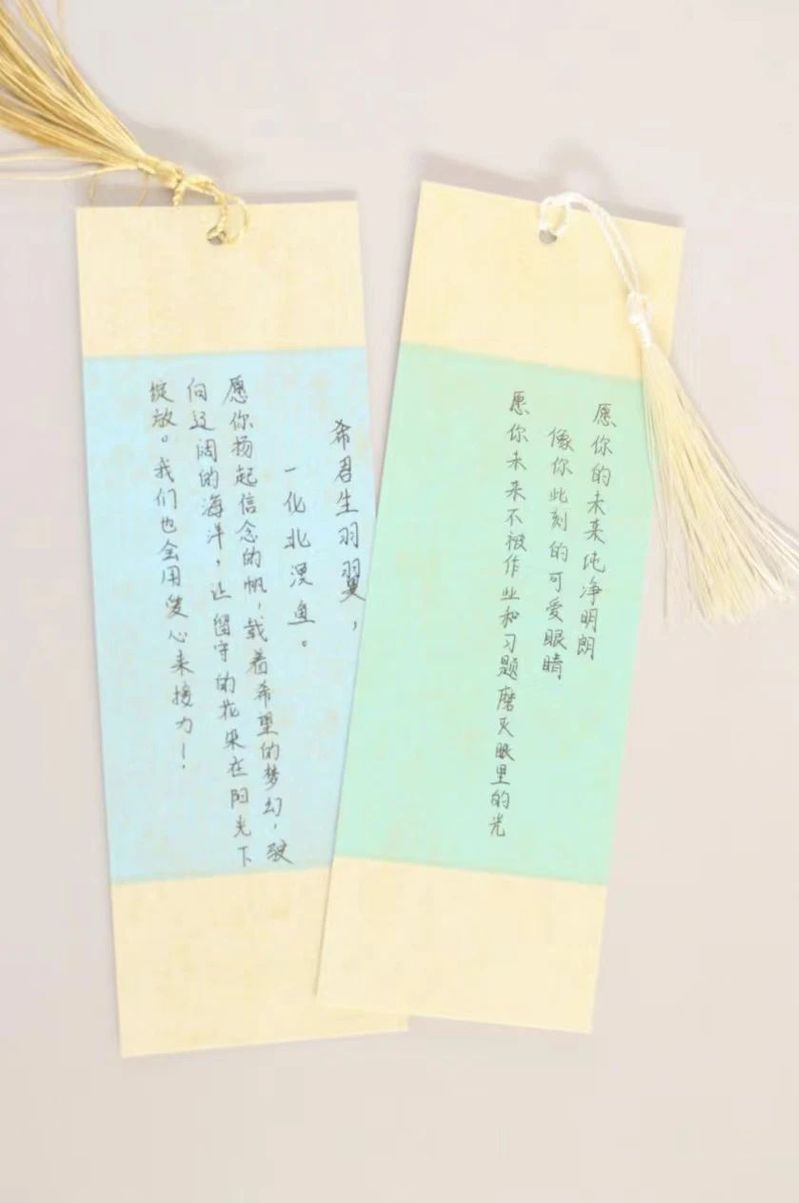 希君生羽翼，
一化北溟鱼。
愿你扬起信念的帆，载着希望的梦幻，驶
向辽阔的海洋，让留守的花朵在阳光下
绽放。我们也会用爱心来接力！
愿你的未来纯净明朗
像你此刻的可爱眼睛
愿你未来不被作业和习题磨灭眼里的光